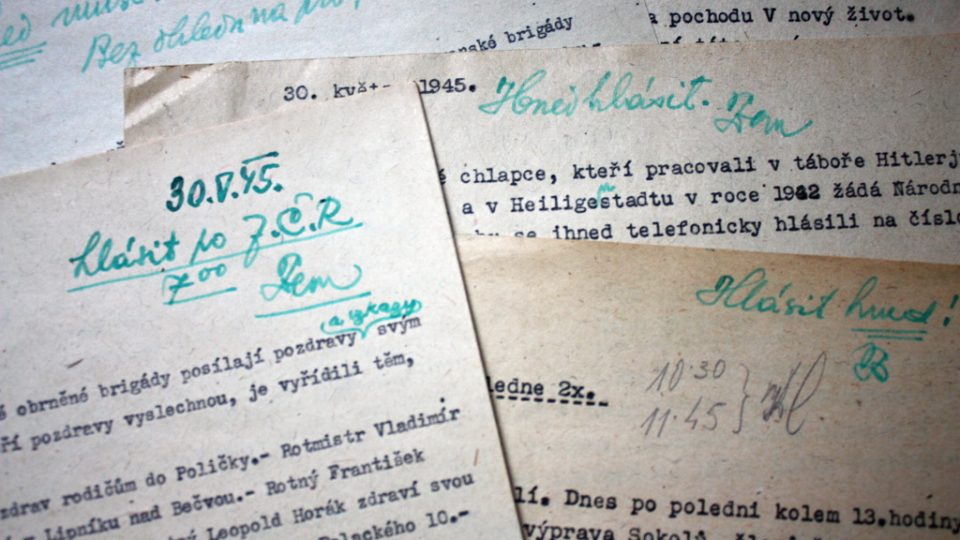 Bez ohledu na
nské brigády
a pochodu V nový život.
30. 1945.
Hned hlásit.
chlapce, kteří pracovali v táboře Hitlerj
a v Heiligenstadtu v roce 1942 žádá Národn
se ihned telefonicky hlásili na číslo
30.V.45.
hlásit po Z.Č.R
7 00
a vzkazy
obrněné brigády posílají pozdravy svým
ří pozdravy vyslechnou, je vyřídili těm,
zdrav rodičům do Poličky.- Rotmistr Vladimír
Lipníku nad Bečvou.- Rotný František
Leopold Horák zdraví svou
Palackého 10.-
Hlásit hned!
B
ledne 2x.
10.30
11.45
lí. Dnes po polední kolem 13.hodiny
výprava Sokolů,